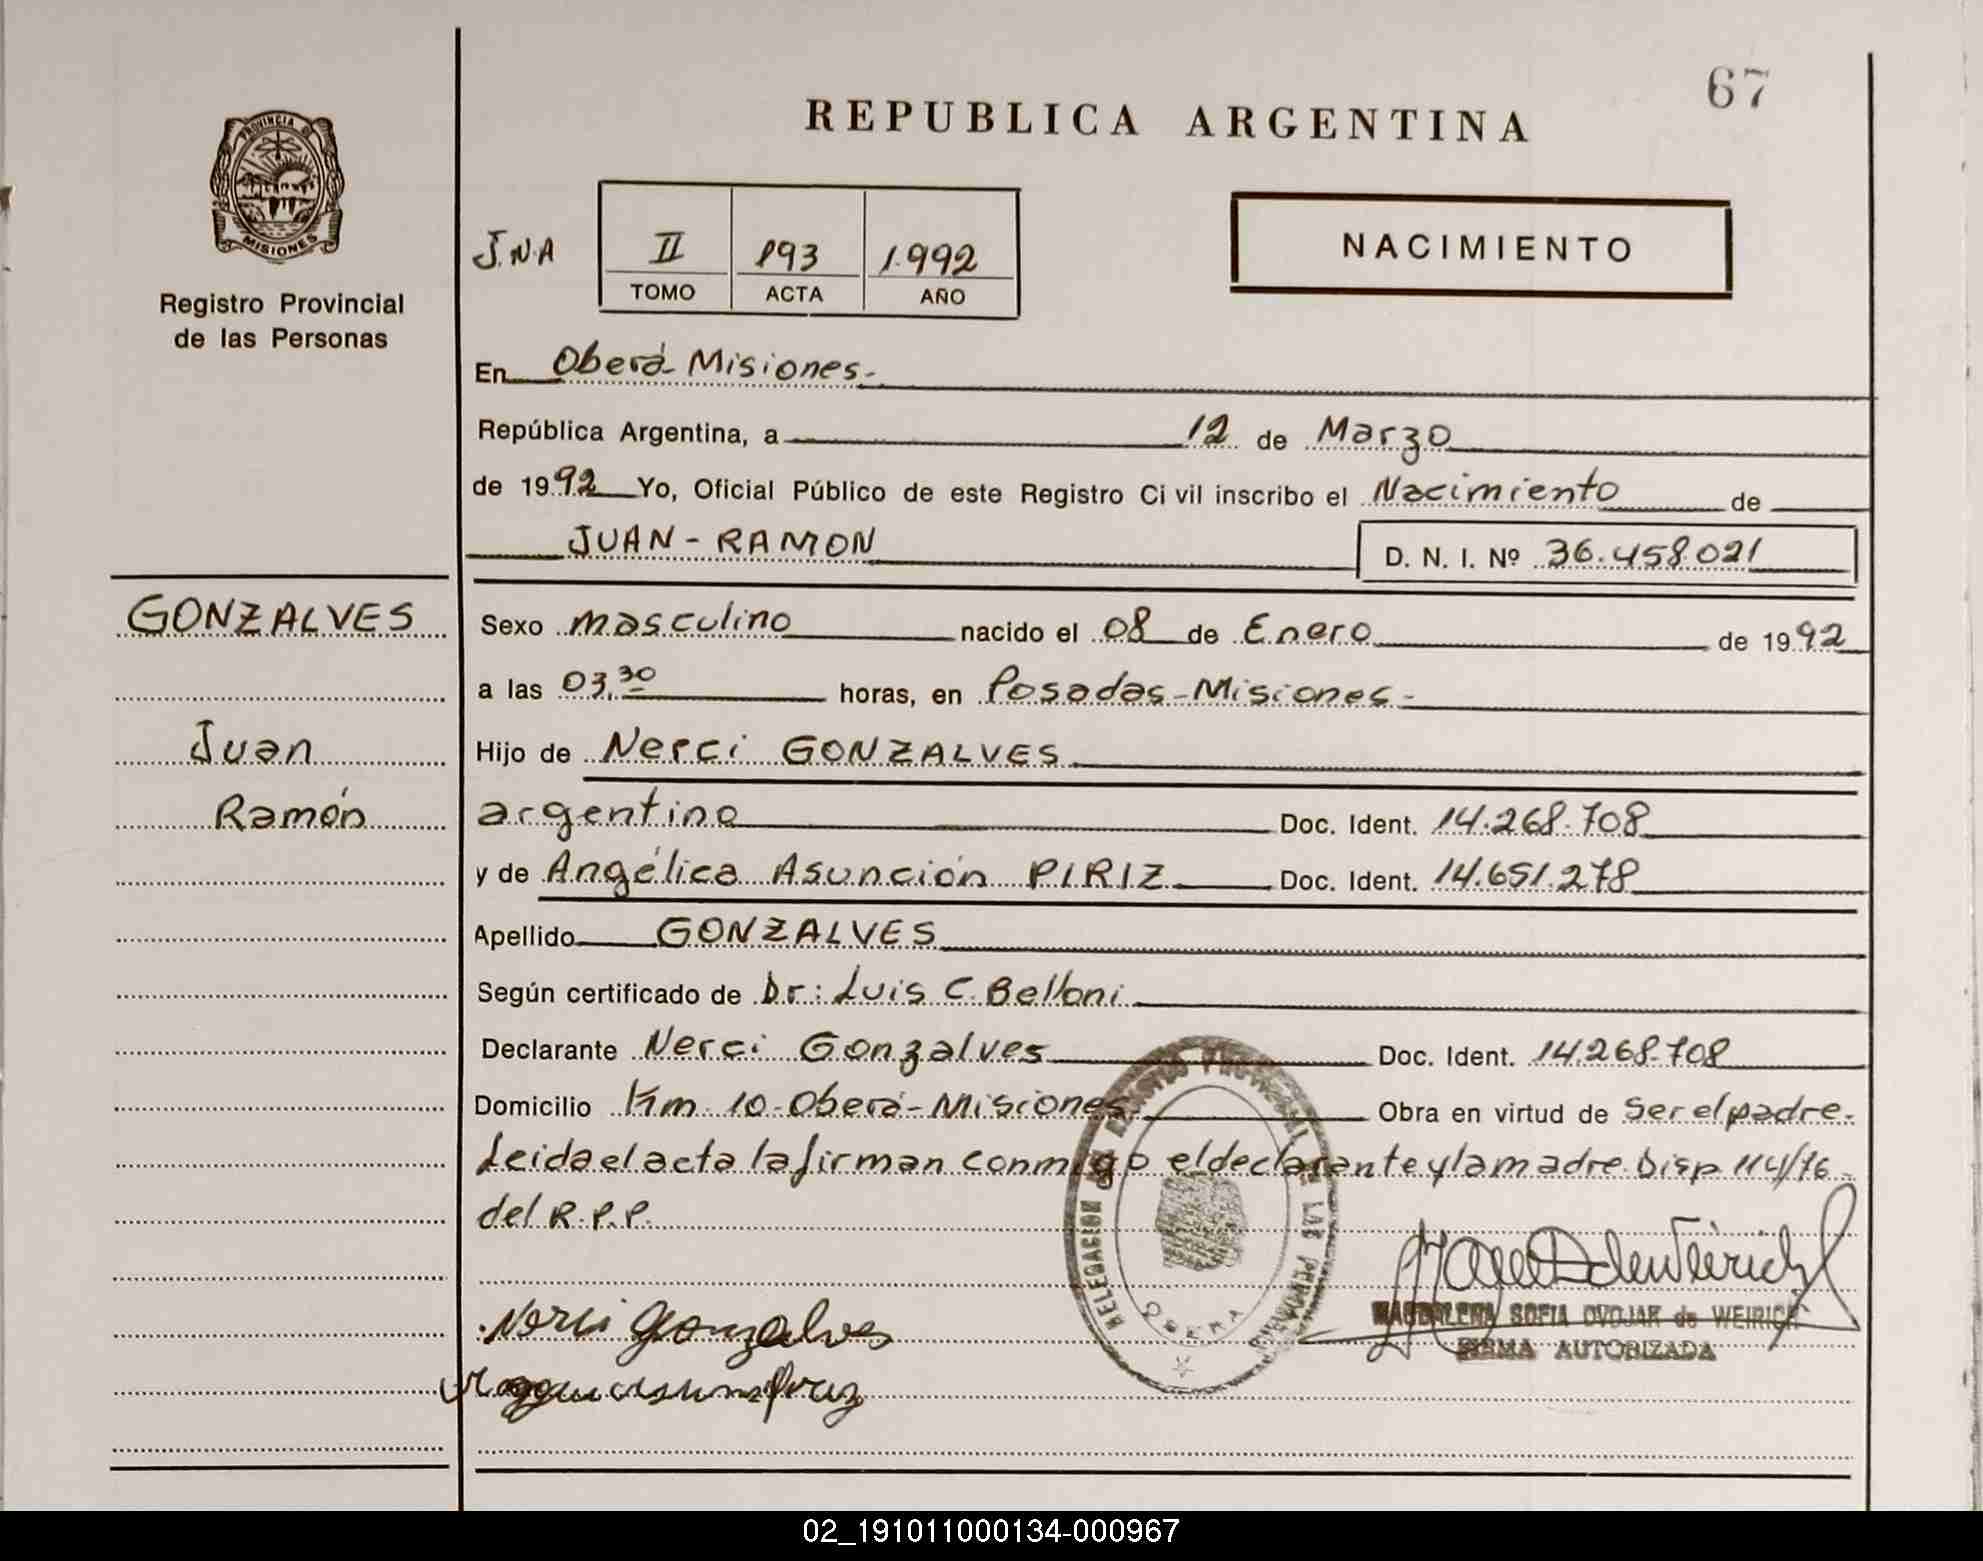 67
REPUBLICA ARGENTINA
PROVINCIA DE
MISIONES
Registro Provincial
de las Personas
J.N.A
II 193 1.992
TOMO ACTA AÑO
NACIMIENTO
En Oberá - Misiones.-
República Argentina, a 12 de Marzo
de 1992 Yo, Oficial Público de este Registro Civil inscribo el Nacimiento de
JUAN - RAMON
D. N. I. Nº 36.458.021
GONZALVES
Juan
Ramón
Sexo masculino nacido el 08 de Enero de 1992
a las 03,30 horas, en Posadas - Misiones -
Hijo de Nerci GONZALVES
argentino Doc. Ident. 14.268.708
y de Angélica Asunción PIRIZ Doc. Ident. 14.651.278
Apellido GONZALVES
Según certificado de Dr: Luis C. Belloni
Declarante Nerci Gonzalves Doc. Ident. 14.268.708
Domicilio Km 10 - Oberá - Misiones. Obra en virtud de ser el padre.
Leida el acta la firman conmigo el declarante y la madre. Disp 114/76 -
del R.P.P.
DELEGACION DEL REGISTRO PROVINCIAL DE LAS PERSONAS
OBERA
MAGDALENA SOFIA OVOJAR de WEIRICH
FIRMA AUTORIZADA
Nerci Gonzalves
02_191011000134-000967